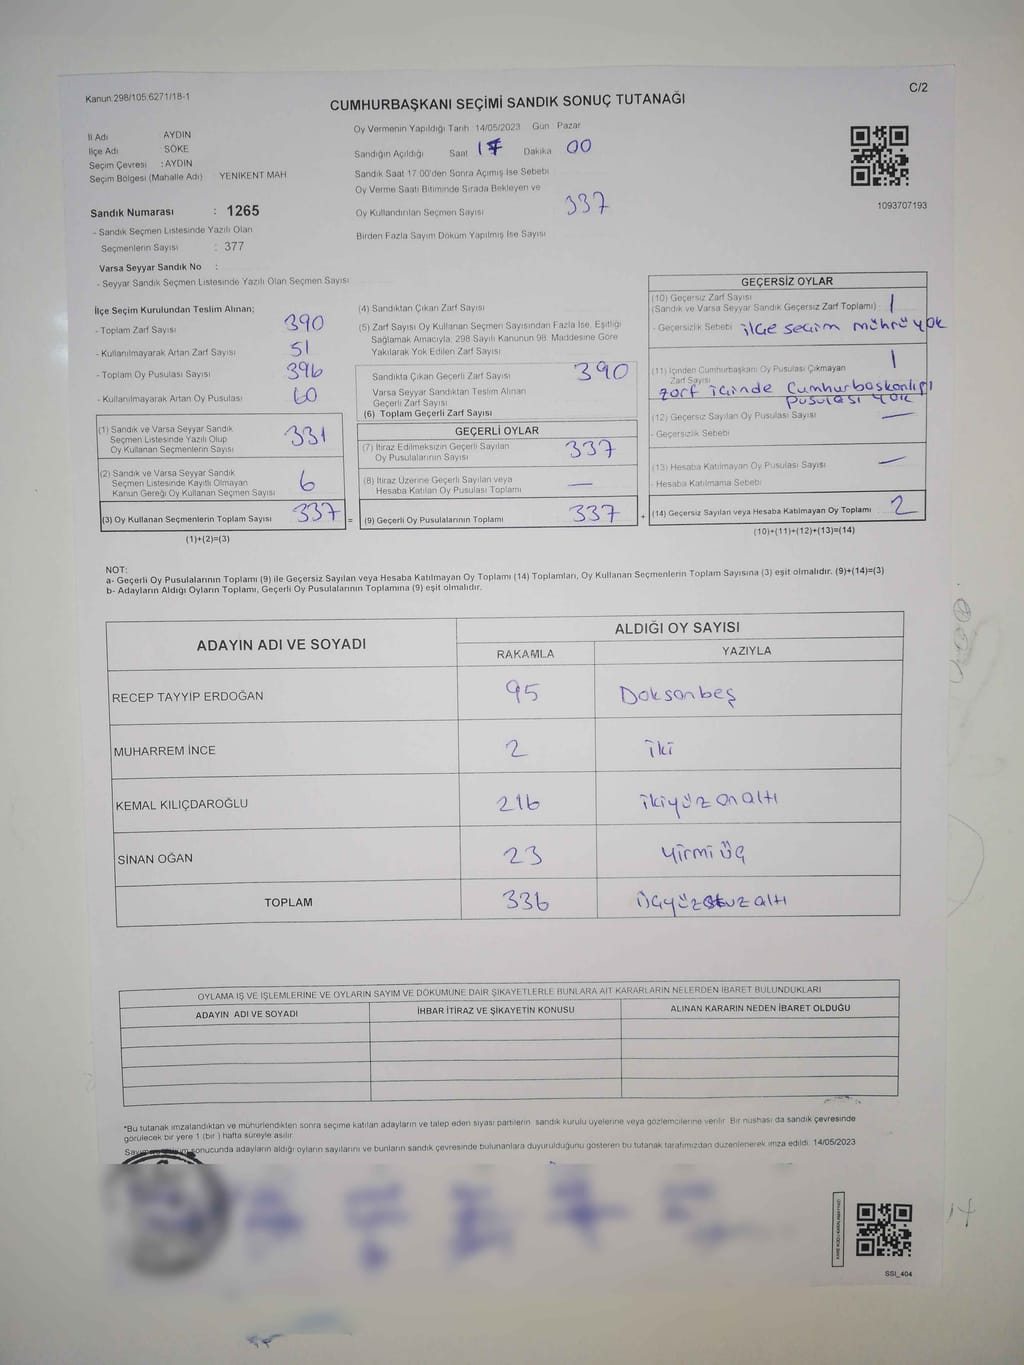 Kanun:298/105;6271/18-1
C/2
CUMHURBAŞKANI SEÇİMİ SANDIK SONUÇ TUTANAĞI
İl Adı AYDIN
İlçe Adı SÖKE
Seçim Çevresi : AYDIN
Seçim Bölgesi (Mahalle Adı) YENIKENT MAH
Sandık Numarası : 1265
- Sandık Seçmen Listesinde Yazılı Olan
Seçmenlerin Sayısı : 377
Varsa Seyyar Sandık No :
- Seyyar Sandık Seçmen Listesinde Yazılı Olan Seçmen Sayısı
Oy Vermenin Yapıldığı Tarih 14/05/2023 Gün Pazar
Sandığın Açıldığı Saat 17 Dakika 00
Sandık Saat 17:00'den Sonra Açımış İse Sebebi
Oy Verme Saati Bitiminde Sırada Bekleyen ve
Oy Kullandırılan Seçmen Sayısı 337
Birden Fazla Sayım Döküm Yapılmış İse Sayısı
1093707193
İlçe Seçim Kurulundan Teslim Alınan;
- Toplam Zarf Sayısı 390
- Kullanılmayarak Artan Zarf Sayısı 51
- Toplam Oy Pusulası Sayısı 396
- Kullanılmayarak Artan Oy Pusulası 60
(1) Sandık ve Varsa Seyyar Sandık
Seçmen Listesinde Yazılı Olup
Oy Kullanan Seçmenlerin Sayısı 331
(2) Sandık ve Varsa Seyyar Sandık
Seçmen Listesinde Kayıtlı Olmayan
Kanun Gereği Oy Kullanan Seçmen Sayısı 6
(3) Oy Kullanan Seçmenlerin Toplam Sayısı 337 =
(1)+(2)=(3)
(4) Sandıktan Çıkan Zarf Sayısı
(5) Zarf Sayısı Oy Kullanan Seçmen Sayısından Fazla İse, Eşitliği
Sağlamak Amacıyla, 298 Sayılı Kanunun 98. Maddesine Göre
Yakılarak Yok Edilen Zarf Sayısı
Sandıkta Çıkan Geçerli Zarf Sayısı 390
Varsa Seyyar Sandıktan Teslim Alınan
Geçerli Zarf Sayısı
(6) Toplam Geçerli Zarf Sayısı
GEÇERLİ OYLAR
(7) İtiraz Edilmeksizin Geçerli Sayılan
Oy Pusulalarının Sayısı 337
(8) İtiraz Üzerine Geçerli Sayılan veya
Hesaba Katılan Oy Pusulası Toplamı —
(9) Geçerli Oy Pusulalarının Toplamı 337 +
GEÇERSİZ OYLAR
(10) Geçersiz Zarf Sayısı
(Sandık ve Varsa Seyyar Sandık Geçersiz Zarf Toplamı) 1
- Geçersizlik Sebebi ilçe seçim mührü yok
(11) İçinden Cumhurbaşkanı Oy Pusulası Çıkmayan
Zarf Sayısı 1
zarf içinde Cumhurbaşkanlığı
pusulası yok
(12) Geçersiz Sayılan Oy Pusulası Sayısı —
- Geçersizlik Sebebi
(13) Hesaba Katılmayan Oy Pusulası Sayısı —
- Hesaba Katılmama Sebebi
(14) Geçersiz Sayılan veya Hesaba Katılmayan Oy Toplamı 2
(10)+(11)+(12)+(13)=(14)
NOT:
a- Geçerli Oy Pusulalarının Toplamı (9) ile Geçersiz Sayılan veya Hesaba Katılmayan Oy Toplamı (14) Toplamları, Oy Kullanan Seçmenlerin Toplam Sayısına (3) eşit olmalıdır. (9)+(14)=(3)
b- Adayların Aldığı Oyların Toplamı, Geçerli Oy Pusulalarının Toplamına (9) eşit olmalıdır.
ADAYIN ADI VE SOYADI ALDIĞI OY SAYISI
RAKAMLA YAZIYLA
RECEP TAYYİP ERDOĞAN 95 Doksanbeş
MUHARREM İNCE 2 iki
KEMAL KILIÇDAROĞLU 216 ikiyüz on altı
SİNAN OĞAN 23 yirmi üç
TOPLAM 336 üçyüzotuz altı
OYLAMA İŞ VE İŞLEMLERİNE VE OYLARIN SAYIM VE DÖKÜMÜNE DAİR ŞİKAYETLERLE BUNLARA AİT KARARLARIN NELERDEN İBARET BULUNDUKLARI
ADAYIN ADI VE SOYADI İHBAR İTİRAZ VE ŞİKAYETİN KONUSU ALINAN KARARIN NEDEN İBARET OLDUĞU
*Bu tutanak imzalandıktan ve mühürlendikten sonra seçime katılan adayların ve talep eden siyasi partilerin sandık kurulu üyelerine veya gözlemcilerine verilir. Bir nüshası da sandık çevresinde
görülecek bir yere 1 (bir ) hafta süreyle asılır.
sonucunda adayların aldığı oyların sayılarını ve bunların sandık çevresinde bulunanlara duyurulduğunu gösteren bu tutanak tarafımızdan düzenlenerek imza edildi. 14/05/2023
SSI_404